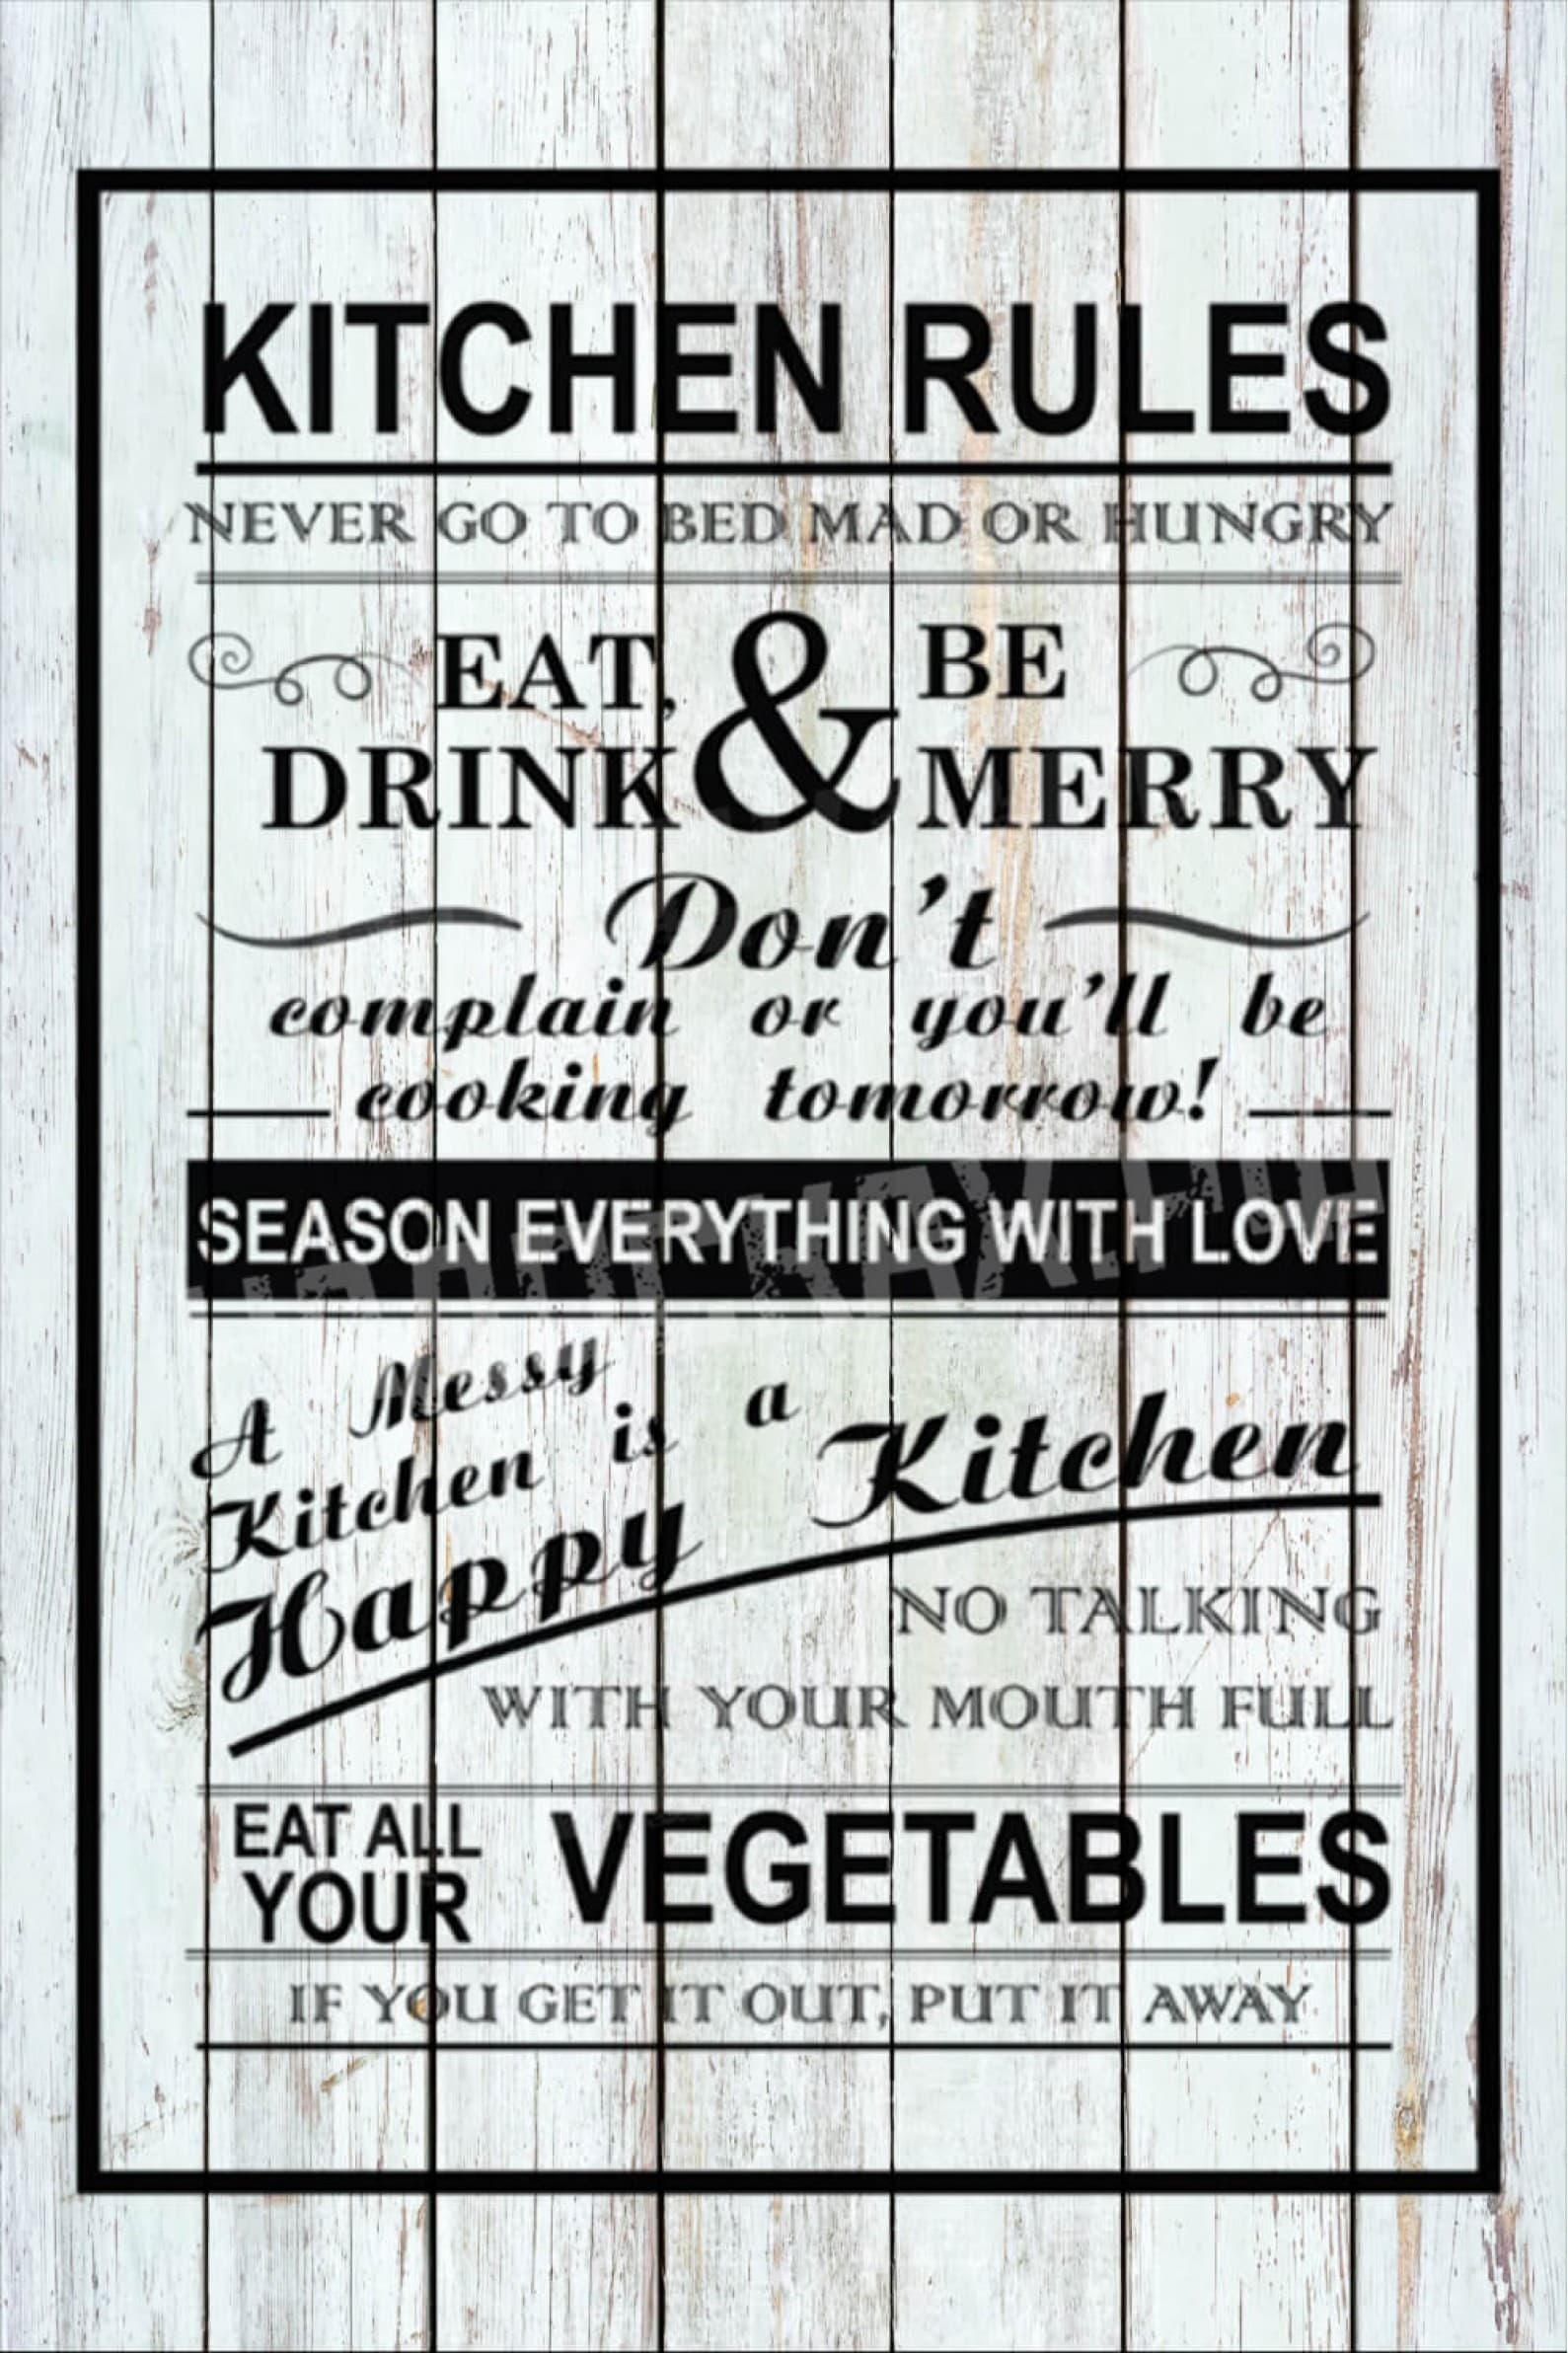 KITCHEN RULES
NEVER GO TO BED MAD OR HUNGRY
EAT,
DRINK
&
BE
MERRY
Don't
complain or you'll be
cooking tomorrow!
SEASON EVERYTHING WITH LOVE
A Messy
Kitchen is a
Happy Kitchen
NO TALKING
WITH YOUR MOUTH FULL
EAT ALL
YOUR
VEGETABLES
IF YOU GET IT OUT, PUT IT AWAY